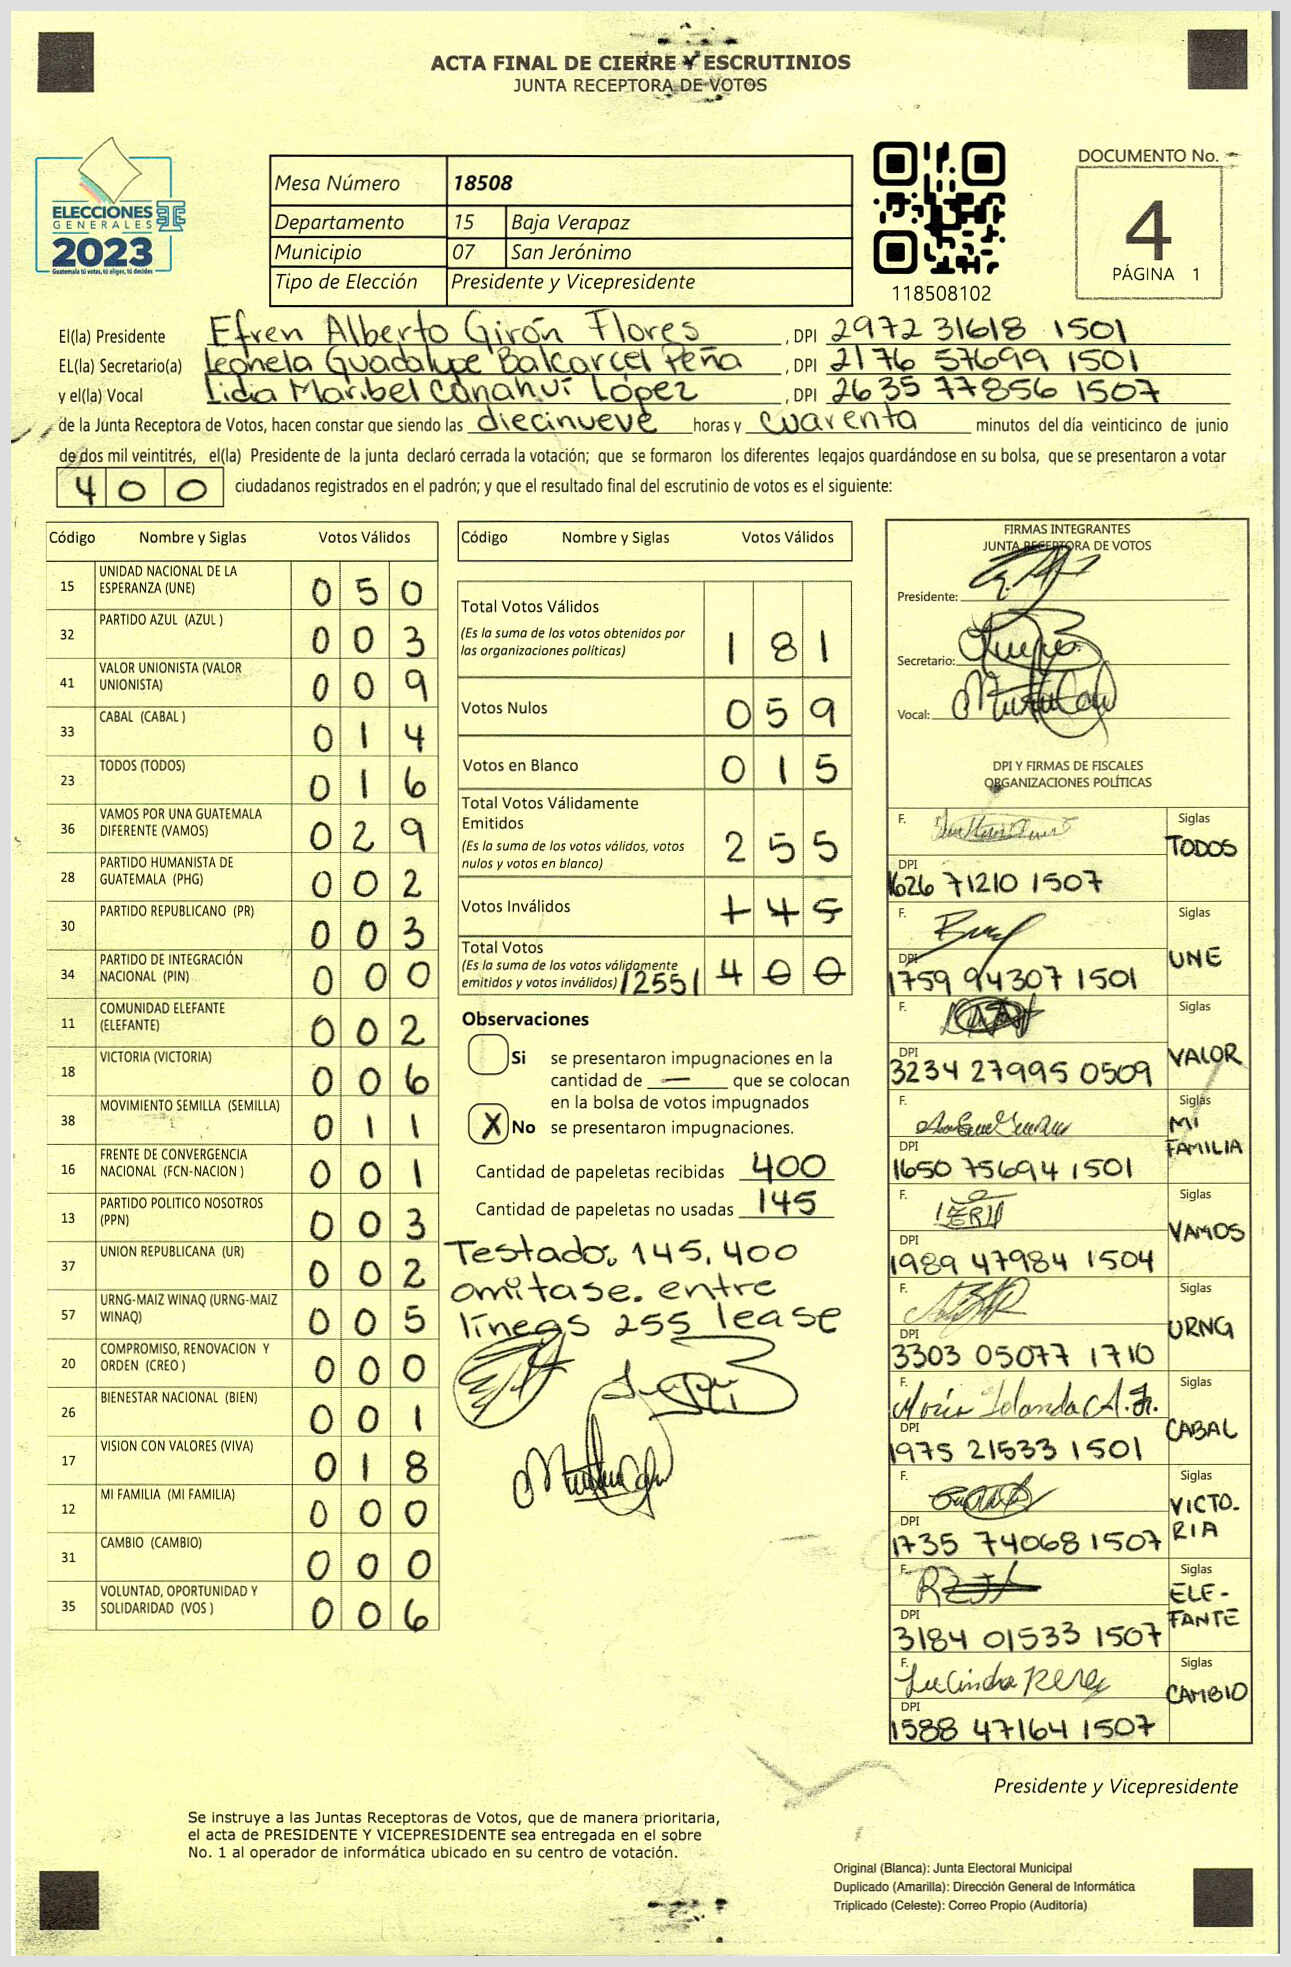 ACTA FINAL DE CIERRE Y ESCRUTINIOS
JUNTA RECEPTORA DE VOTOS
ELECCIONES
GENERALES
2023
Guatemala tú votas, tú eliges, tú decides
Mesa Número 18508
Departamento 15 Baja Verapaz
Municipio 07 San Jerónimo
Tipo de Elección Presidente y Vicepresidente
118508102
DOCUMENTO No.
4
PÁGINA 1
El(la) Presidente Efren Alberto Girón Flores, DPI 2972 31618 1501
EL(la) Secretario(a) Leonela Guadalupe Balcarcel Peña, DPI 2176 57699 1501
y el(la) Vocal Lidia Maribel Canahuí López, DPI 2635 77856 1507
de la Junta Receptora de Votos, hacen constar que siendo las diecinueve horas y cuarenta minutos del día veinticinco de junio
de dos mil veintitrés, el(la) Presidente de la junta declaró cerrada la votación; que se formaron los diferentes legajos guardándose en su bolsa, que se presentaron a votar
400 ciudadanos registrados en el padrón; y que el resultado final del escrutinio de votos es el siguiente:
Código Nombre y Siglas Votos Válidos
15 UNIDAD NACIONAL DE LA ESPERANZA (UNE) 050
32 PARTIDO AZUL (AZUL ) 003
41 VALOR UNIONISTA (VALOR UNIONISTA) 009
33 CABAL (CABAL ) 014
23 TODOS (TODOS) 016
36 VAMOS POR UNA GUATEMALA DIFERENTE (VAMOS) 029
28 PARTIDO HUMANISTA DE GUATEMALA (PHG) 002
30 PARTIDO REPUBLICANO (PR) 003
34 PARTIDO DE INTEGRACIÓN NACIONAL (PIN) 000
11 COMUNIDAD ELEFANTE (ELEFANTE) 002
18 VICTORIA (VICTORIA) 006
38 MOVIMIENTO SEMILLA (SEMILLA) 011
16 FRENTE DE CONVERGENCIA NACIONAL (FCN-NACION ) 001
13 PARTIDO POLITICO NOSOTROS (PPN) 003
37 UNION REPUBLICANA (UR) 002
57 URNG-MAIZ WINAQ (URNG-MAIZ WINAQ) 005
20 COMPROMISO, RENOVACION Y ORDEN (CREO ) 000
26 BIENESTAR NACIONAL (BIEN) 001
17 VISION CON VALORES (VIVA) 018
12 MI FAMILIA (MI FAMILIA) 000
31 CAMBIO (CAMBIO) 000
35 VOLUNTAD, OPORTUNIDAD Y SOLIDARIDAD (VOS ) 006
Código Nombre y Siglas Votos Válidos
Total Votos Válidos
(Es la suma de los votos obtenidos por
las organizaciones políticas) 181
Votos Nulos 059
Votos en Blanco 015
Total Votos Válidamente
Emitidos
(Es la suma de los votos válidos, votos
nulos y votos en blanco) 255
Votos Inválidos 145
Total Votos
(Es la suma de los votos válidamente
emitidos y votos inválidos) /255/ 400
Observaciones
Si se presentaron impugnaciones en la
cantidad de — que se colocan
en la bolsa de votos impugnados
X No se presentaron impugnaciones.
Cantidad de papeletas recibidas 400
Cantidad de papeletas no usadas 145
Testado. 145, 400
omitase. entre
líneas 255 lease
FIRMAS INTEGRANTES
JUNTA RECEPTORA DE VOTOS
Presidente:
Secretario:
Vocal:
DPI Y FIRMAS DE FISCALES
ORGANIZACIONES POLÍTICAS
F. Siglas TODOS
DPI 1626 71210 1507
F. Siglas UNE
DPI 1759 94307 1501
F. Siglas VALOR
DPI 3234 27995 0509
F. Siglas MI FAMILIA
DPI 1650 75694 1501
F. Siglas VAMOS
DPI 1989 47984 1504
F. Siglas URNG
DPI 3303 05077 1710
F. Siglas CABAL
DPI 1975 21533 1501
F. Siglas VICTO-
RIA
DPI 1735 74068 1507
F. Siglas ELE-
FANTE
DPI 3184 01533 1507
F. Siglas CAMBIO
DPI 1588 47164 1507
Presidente y Vicepresidente
Se instruye a las Juntas Receptoras de Votos, que de manera prioritaria,
el acta de PRESIDENTE Y VICEPRESIDENTE sea entregada en el sobre
No. 1 al operador de informática ubicado en su centro de votación.
Original (Blanca): Junta Electoral Municipal
Duplicado (Amarilla): Dirección General de Informática
Triplicado (Celeste): Correo Propio (Auditoría)